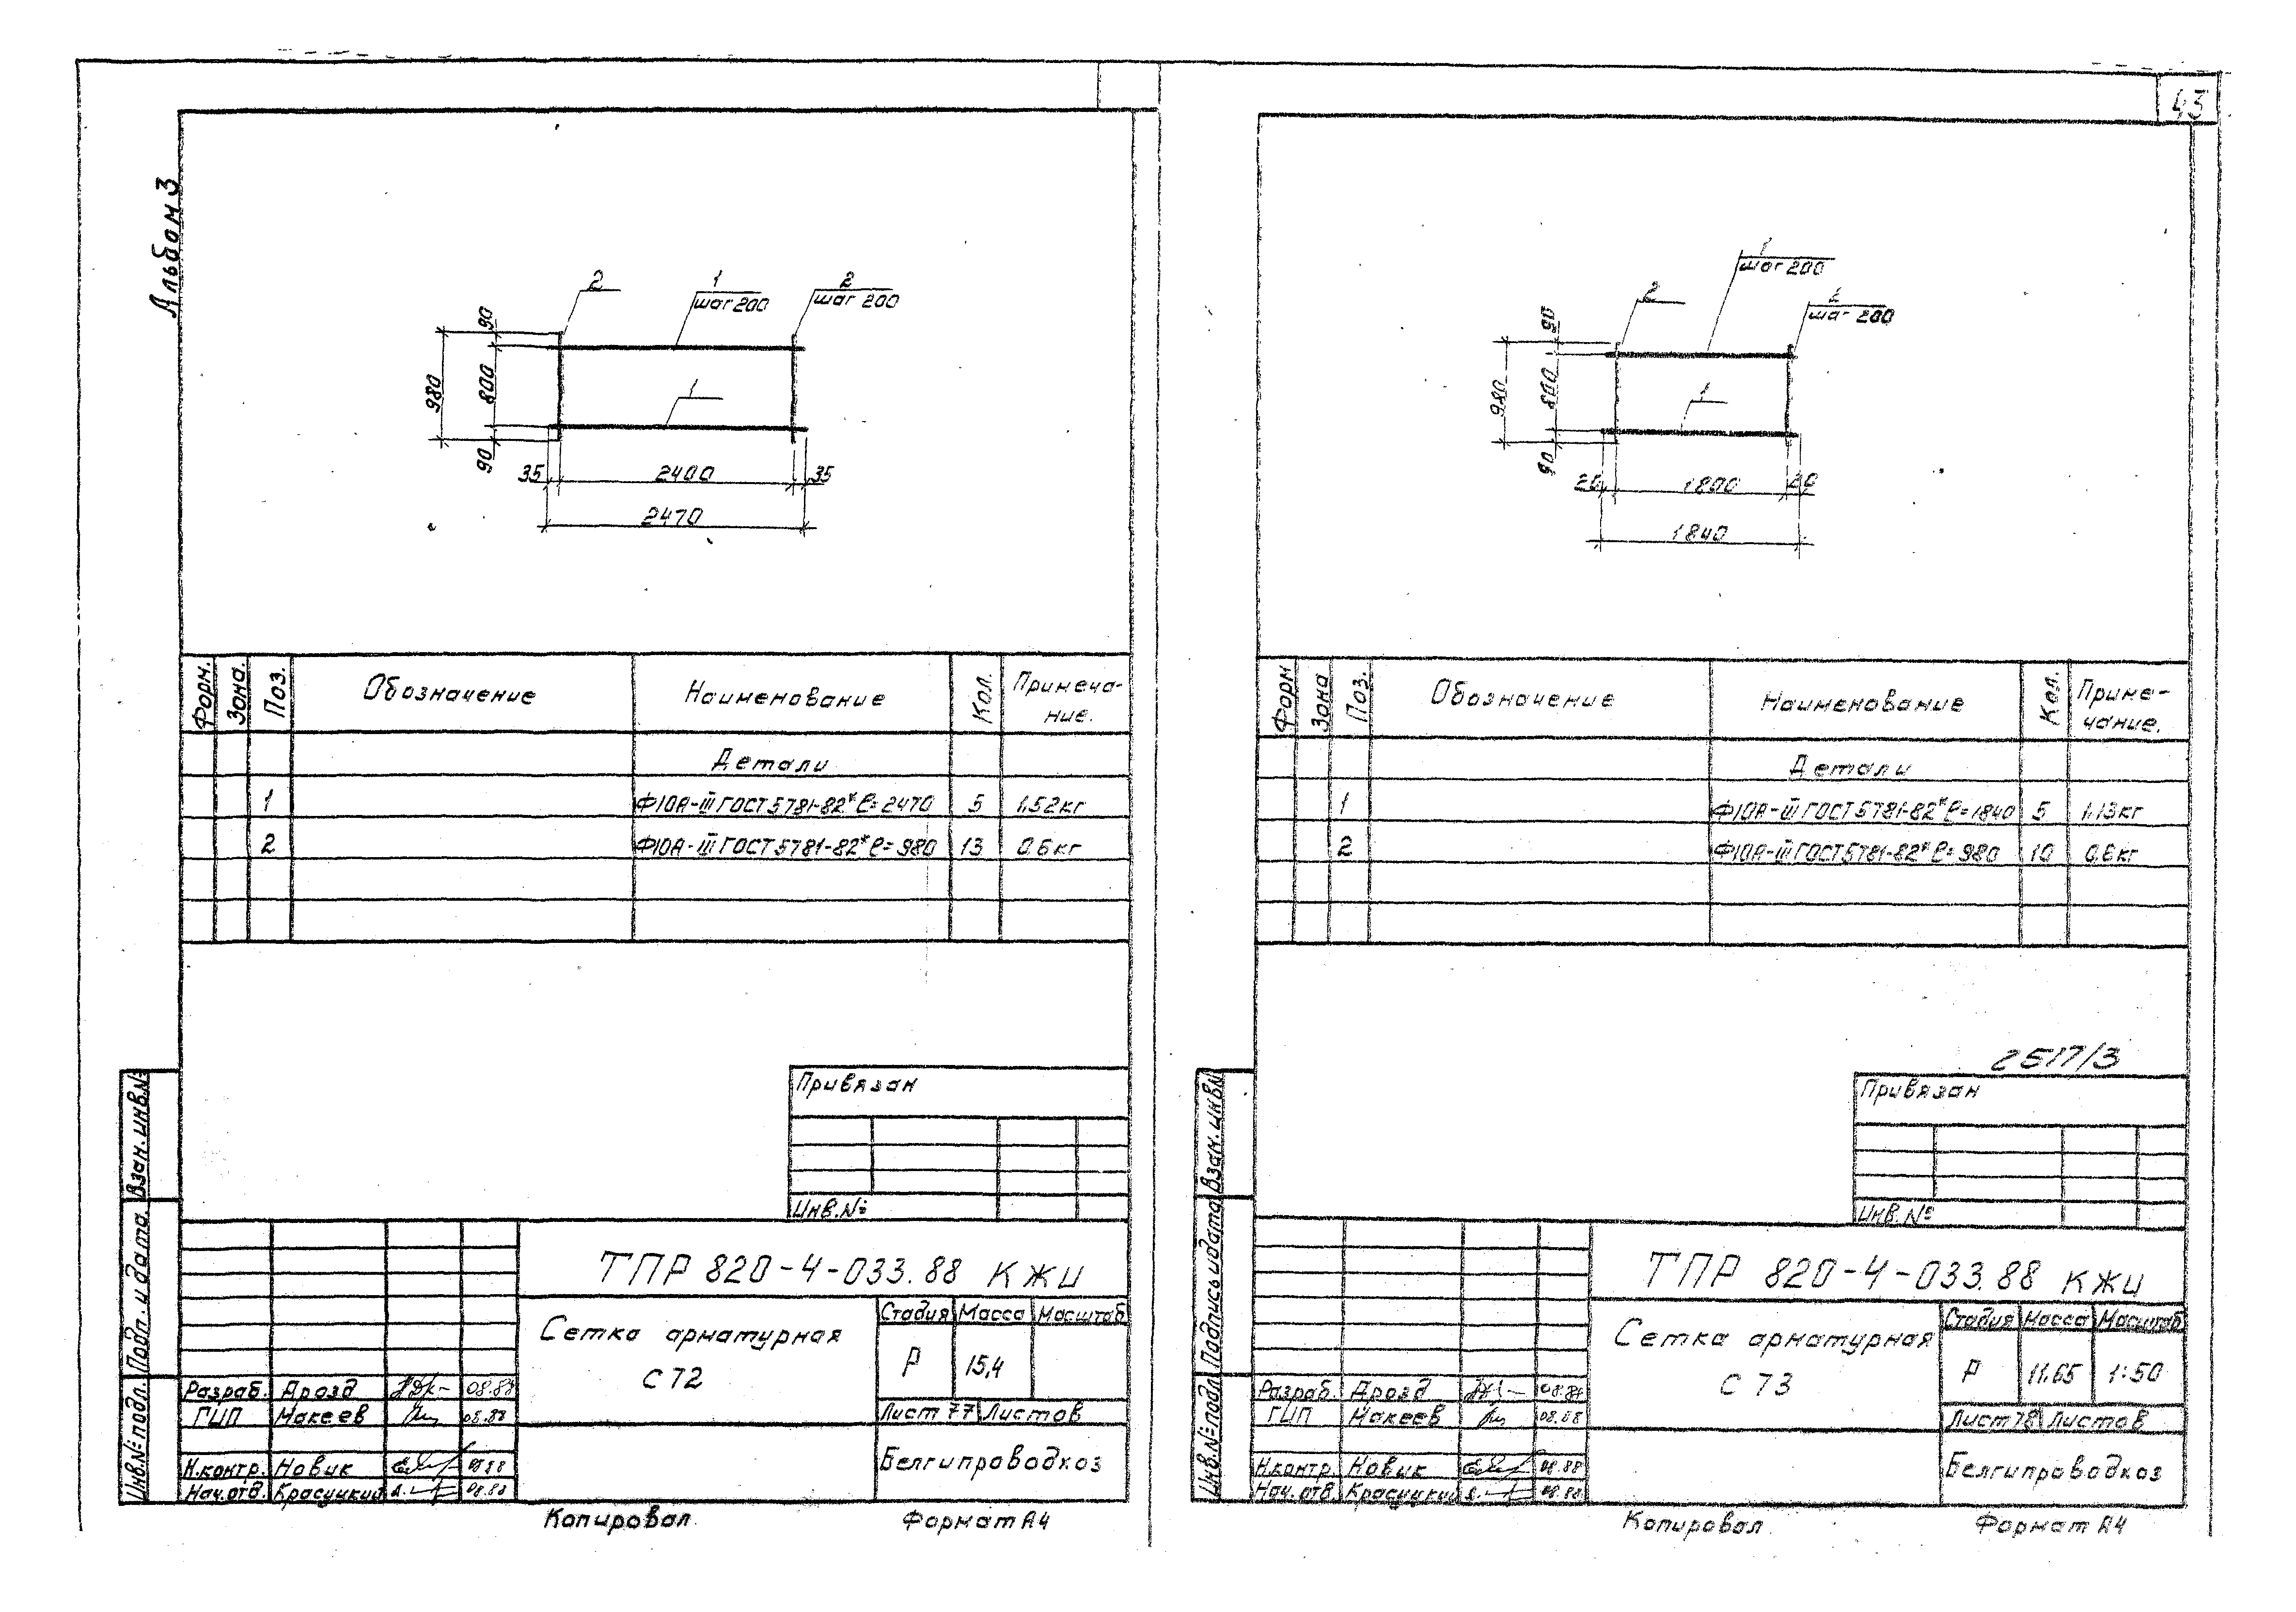 43
Альбом 3
2
1
шаг 200
2
шаг 200
90
800
980
90
1
35
2400
35
2470
Форм.
Зона.
Поз.
Обозначение
Наименование
Кол.
Примеча-
ние.
Детали
1 Ф10А-III ГОСТ 5781-82* ℓ=2470 5 1,52кг
2 Ф10А-III ГОСТ 5781-82* ℓ=980 13 0.6кг
Привязан
Инв.№
Взам.инв.№
Подп. и дата.
Инв.№подл.
ТПР 820-4-033.88 КЖИ
Сетка арматурная
С 72
Стадия Масса Масштаб
Р 15,4
Лист 77 Листов
Белгипроводхоз
Разраб. Дрозд 08.88
ГИП Макеев 08.88
Н.контр. Новик 08.88
Нач.отд. Красуцкий 08.88
Копировал
Формат А4
1
шаг 200
2
2
шаг 200
90
800
980
90
1
20
1800
20
1840
Форм
Зона
Поз.
Обозначение
Наименование
Кол.
Приме-
чание.
Детали
1 Ф10А-III ГОСТ 5781-82* ℓ=1840 5 1,13кг
2 Ф10А-III ГОСТ 5781-82* ℓ=980 10 0,6кг
2517/3
Привязан
Инв.№
Взам.инв.№
Подпись и дата
Инв.№подл
ТПР 820-4-033.88 КЖИ
Сетка арматурная
С 73
Стадия Масса Масштаб
Р 11.65 1:50
Лист 78 Листов
Белгипроводхоз
Разраб. Дрозд 08.88
ГИП Макеев 08.88
Н.контр. Новик 08.88
Нач.отд. Красуцкий 08.88
Копировал
Формат А4